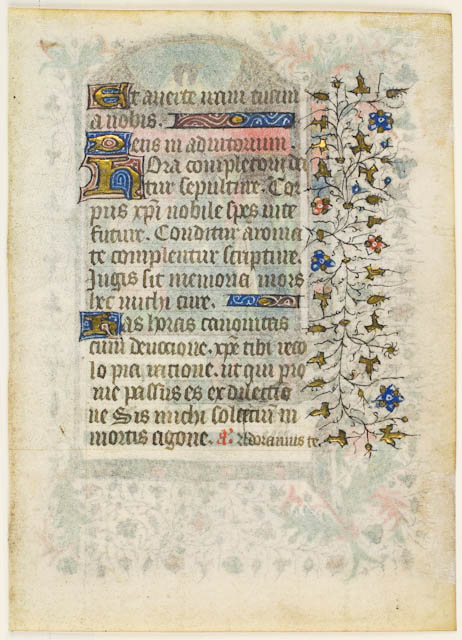 Et averte iram tuam
a nobis.
Deus in adiutorium.
Hora completorii da
tur sepulture. Cor
pus xpi nobile spes vite
future. Conditur aroma
te complentur scripture.
Jugis sit memoria mors
hec michi cure.
Has horas canonicas
cum devocione. xpe tibi reco
lo pia ratione. ut qui pro
me passus es ex dilectio
ne Sis michi solatium in
mortis agone. a. Adoramus te